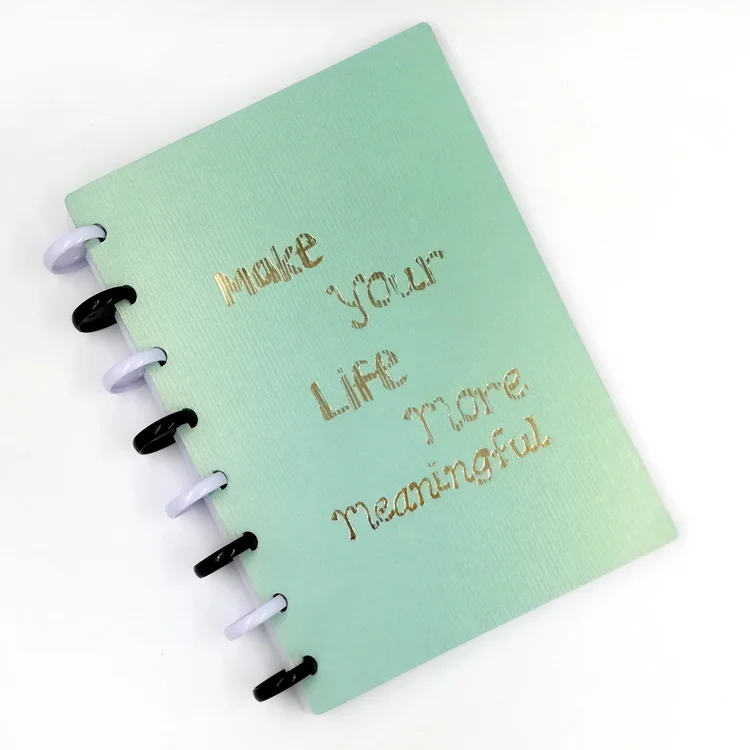 Make
your
Life
more
meaningful